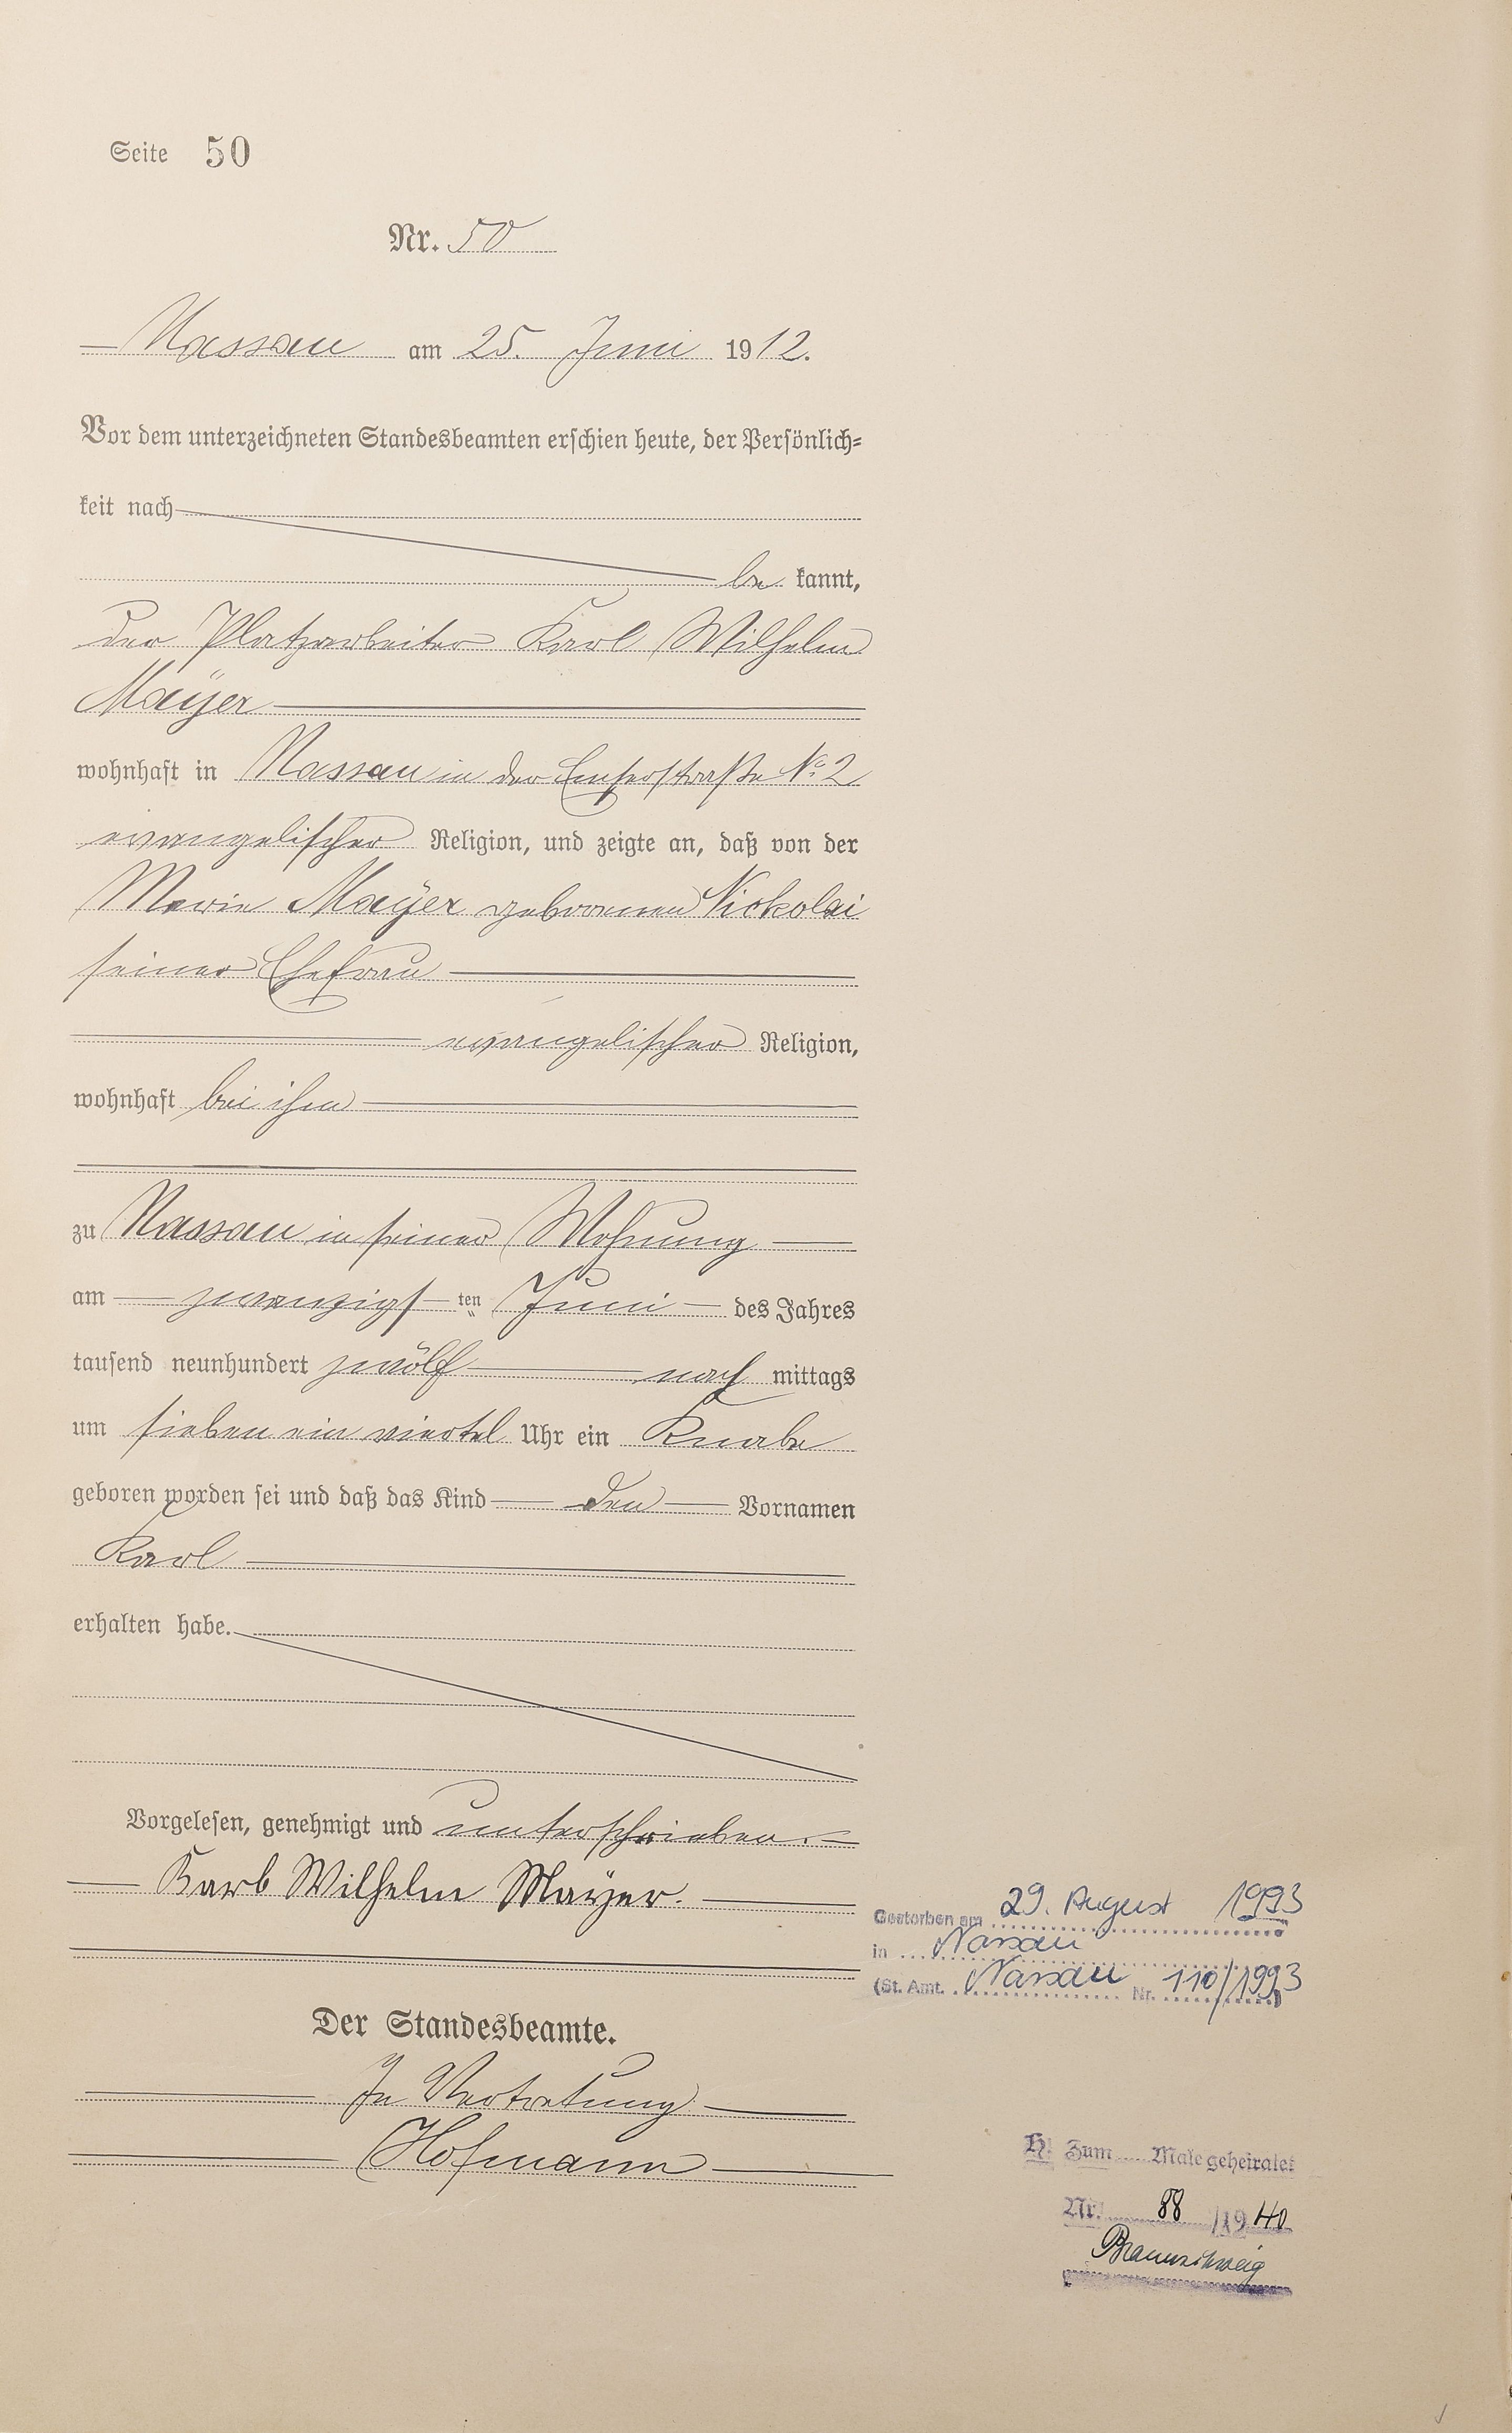 Seite 50
Nr. 50
Nassau am 25. Juni 1912.
Vor dem unterzeichneten Standesbeamten erschien heute, der Persönlich=
keit nach
be kannt,
der Platzarbeiter Karl Wilhelm
Maÿer
wohnhaft in Nassau in der Emserstraße No 2
evangelischer Religion, und zeigte an, daß von der
Marie Maÿer geborenen Nickolai
seiner Ehefrau
evangelischer Religion,
wohnhaft bei ihm
zu Nassau in seiner Wohnung
am zwanzigsten Juni des Jahres
tausend neunhundert zwölf nach mittags
um sieben ein viertel Uhr ein Knabe
geboren worden sei und daß das Kind den Vornamen
Karl
erhalten habe.
Vorgelesen, genehmigt und unterschrieben.
Karl Wilhelm Maÿer.
Gestorben am 29. August 1993
in Nassau
(St. Amt. Nassau Nr. 110/1993)
Der Standesbeamte.
In Vertretung
Hofmann
H! Zum Male geheiratet
Nr. 88/1940
Braunschweig